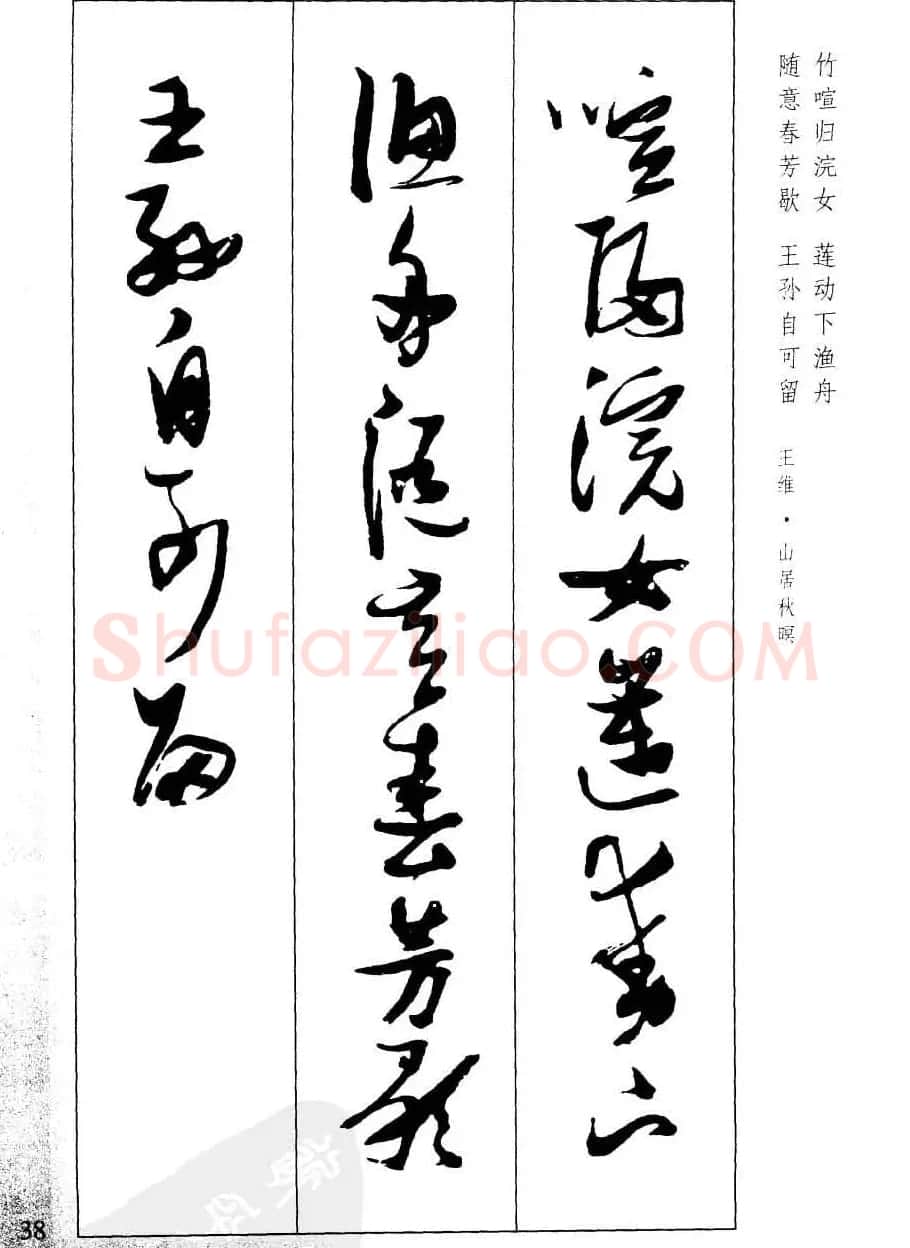 竹喧归浣女 莲动下渔舟
随意春芳歇 王孙自可留 王维·山居秋暝
喧歸浣女蓮動下
漁舟隨意春芳歇
王孫自可留
Shufaziliao.COM
38